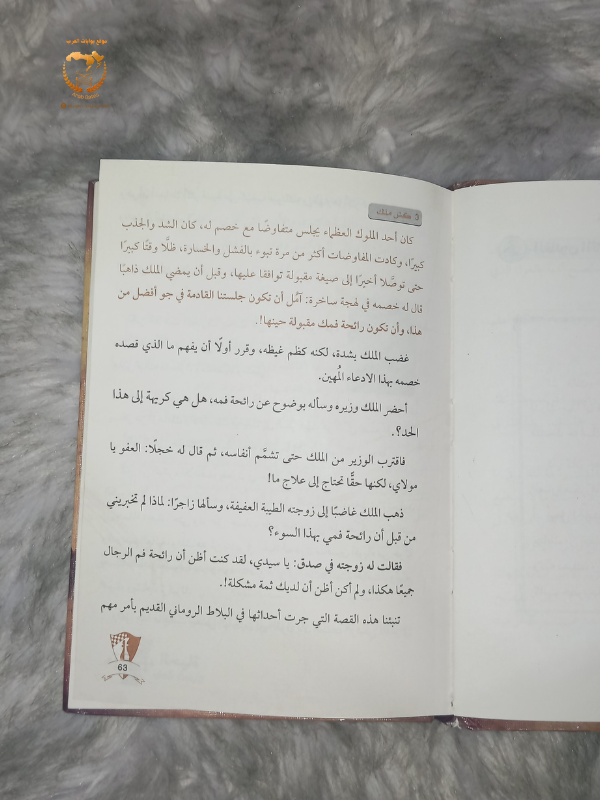 موقع بوابات العرب
كش ملك
كان أحد الملوك العظماء يجلس متفاوضًا مع خصم له، كان الشد والجذب
كبيرًا، وكادت المفاوضات أكثر من مرة تبوء بالفشل والخسارة، ظلَّا وقتًا كبيرًا
حتى توصَّلا أخيرًا إلى صيغة مقبولة توافقا عليها، وقبل أن يمضي الملك ذاهبًا
قال له خصمه في لهجة ساخرة: آمُل أن تكون جلستنا القادمة في جو أفضل من
هذا، وأن تكون رائحة فمك مقبولة حينها!.
غضب الملك بشدة، لكنه كظم غيظه، وقرر أولًا أن يفهم ما الذي قصده
خصمه بهذا الادعاء المُهين.
أحضر الملك وزيره وسأله بوضوح عن رائحة فمه، هل هي كريهة إلى هذا
الحد؟.
فاقترب الوزير من الملك حتى تشمَّم أنفاسه، ثم قال له خجلًا: العفو يا
مولاي، لكنها حقًّا تحتاج إلى علاج ما!
ذهب الملك غاضبًا إلى زوجته الطيبة العفيفة، وسألها زاجرًا: لماذا لم تخبريني
من قبل أن رائحة فمي بهذا السوء؟
فقالت له زوجته في صدق: يا سيدي، لقد كنت أظن أن رائحة فم الرجال
جميعًا هكذا، ولم أكن أظن أن لديك ثمة مشكلة!.
تنبئنا هذه القصة التي جرت أحداثها في البلاط الروماني القديم بأمر مهم
63